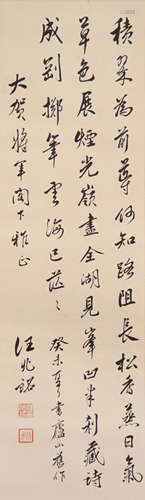 積翠為前導何知路阻長松香蒸日氣
草色展煙光嶺盡全湖見峯凹半刹藏詩
成剛擲筆雲海已茫〻
大賀將軍閣下雅正
癸未夏日書廬山舊作
汪兆銘